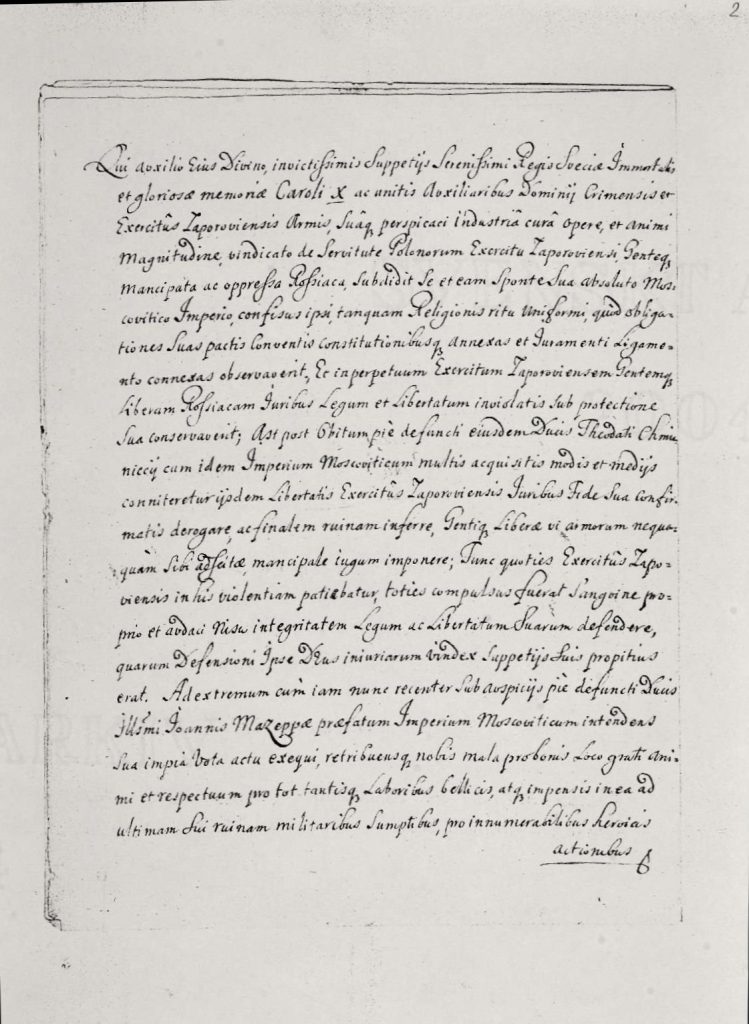 2
Qui auxilio Eius Divino, invictissimis Suppetijs Serenissimi Regis Sveciæ Immortalis
et gloriosæ memoriæ Caroli X ac unitis Auxiliaribus Dominij Crimensis et
Exercitûs Zaporoviensis Armis, suâq perspicaci industriâ curâ opere, et animi
Magnitudine, vindicato de Servitute Polonorum Exercitu Zaporoviensi, Genteq
Mancipata ac oppressa Rossiaca, subdidit se et eam Sponte Sua absoluto Mos-
covitico Imperio, confisus ipsi, tanquam Religionis ritu Uniformi, quod obliga-
tiones suas pactis Conventis constitutionibusq annexas et Iuramenti Ligame-
nto connexas observaverit, Et in perpetuum Exercitum Zaporoviensem Gentemq
Liberam Rossiacam Iuribus Legum et Libertatum inviolatis sub protectione
sua conservaverit; Ast post Obitum piè defuncti eiusdem Ducis Theodati Chmi-
niecij cum idem Imperium Moscoviticum multis acquisitis modis et medijs
conniteretur ijsdem Libertatis Exercitûs Zaporoviensis Iuribus Fide Sua Confir-
matis derogare, ac finalem ruinam inferre, Gentiq Liberæ vi armorum nequa-
quàm sibi adscitæ, mancipale iugum imponere; Tunc quoties Exercitûs Zapo-
viensis in his violentiam patiebatur, toties compulsus fuerat Sanguine pro-
prio et audaci Nisu integritatem Legum ac Libertatum Suarum defendere,
quarum Defensioni Ipse Deus iniuriarum Vindex Suppetijs suis propitius
erat. Ad extremum cùm iam nunc recenter sub auspicijs piè defuncti Ducis
Illsmi Ioannis Mazeppæ præfatum Imperium Moscoviticum intendens
sua impia Vota actu exequi, retribuensq nobis mala pro bonis Loco grati Ani-
mi et respectuum pro tot tantisq Laboribus bellicis, atq impensis in ea ad
ultimam sui ruinam militaribus Sumptibus, pro innumerabilibus heroicis
actionibus